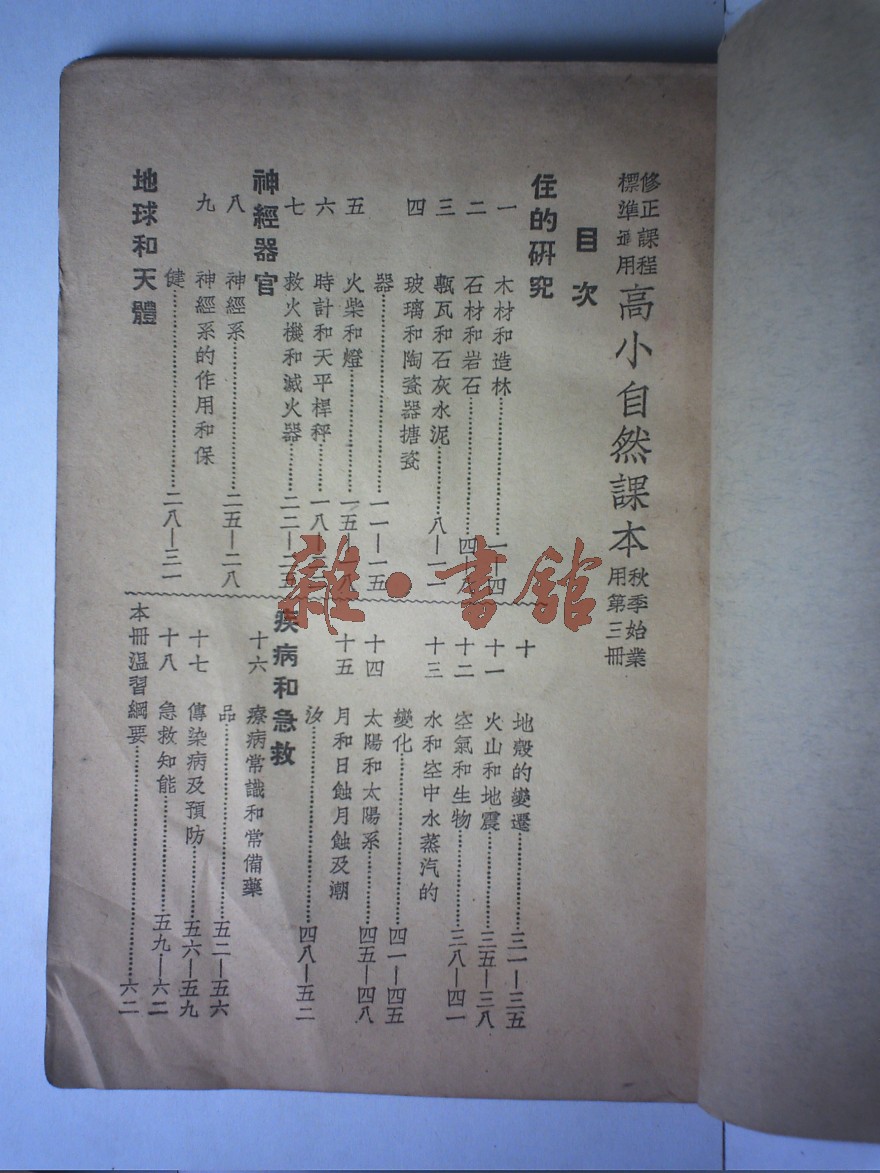 修正課程
標準適用
高小自然課本
秋季始業
用第三冊
目次
住的研究
一 木材和造林…………一—四
二 石材和岩石…………四—八
三 甎瓦和石灰水泥…………八—一一
四 玻璃和陶瓷器搪瓷
器…………一一—一五
五 火柴和燈…………一五—一八
六 時計和天平桿秤…………一八—二二
七 救火機和滅火器…………二二—二五
神經器官
八 神經系…………二五—二八
九 神經系的作用和保
健…………二八—三一
地球和天體
十 地殼的變遷…………三一—三五
十一 火山和地震…………三五—三八
十二 空氣和生物…………三八—四一
十三 水和空中水蒸汽的
變化…………四一—四五
十四 太陽和太陽系…………四五—四八
十五 月和日蝕月蝕及潮
汐…………四八—五二
疾病和急救
十六 療病常識和常備藥
品…………五二—五六
十七 傳染病及預防…………五六—五九
十八 急救知能…………五九—六二
本冊溫習綱要…………六二
雜·書館